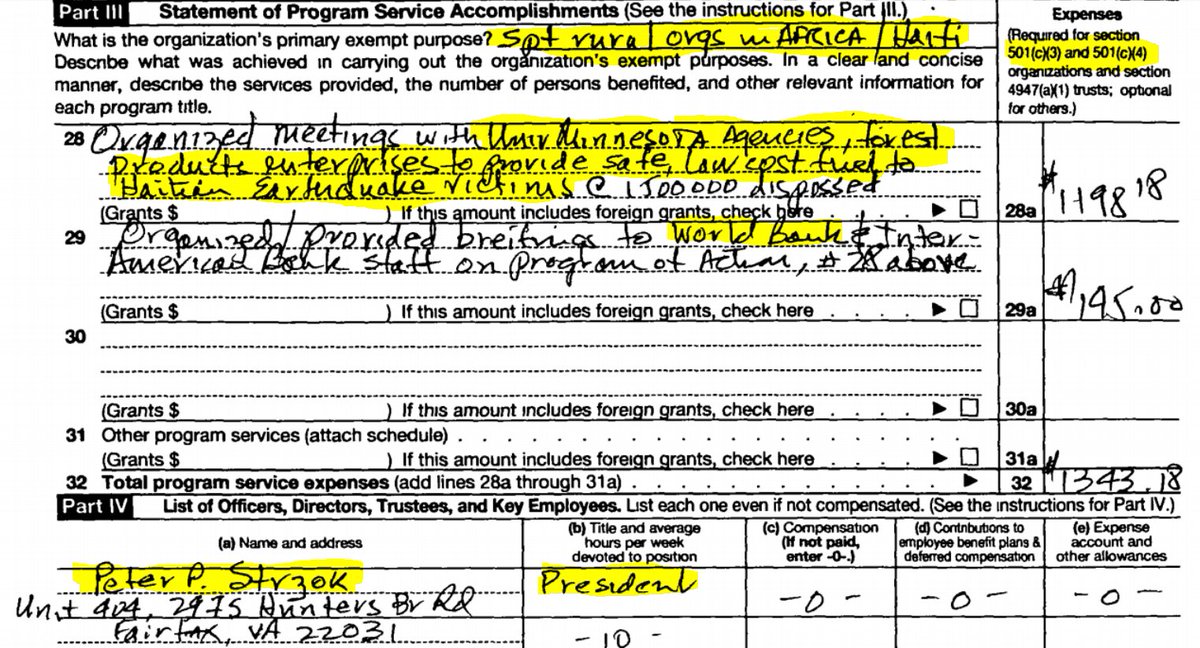 Part III Statement of Program Service Accomplishments (See the instructions for Part III.)
Expenses
(Required for section
501(c)(3) and 501(c)(4)
organizations and section
4947(a)(1) trusts; optional
for others.)
What is the organization's primary exempt purpose? Spt rural orgs in AFRICA/Haiti
Describe what was achieved in carrying out the organization's exempt purposes. In a clear and concise
manner, describe the services provided, the number of persons benefited, and other relevant information for
each program title.
28 Organized meetings with Univ Minnesota Agencies, forest
products enterprises to provide safe, low cost fuel to
Haitian Earthquake victims @ 1500000 dispossed
(Grants $ ) If this amount includes foreign grants, check here . . . . ► □ 28a $1198 18
29 Organized/provided breifings to World Bank & Inter-
American Bank staff on program of Action, # 28 above
(Grants $ ) If this amount includes foreign grants, check here . . . . ► □ 29a $145.00
30
(Grants $ ) If this amount includes foreign grants, check here . . . . ► □ 30a
31 Other program services (attach schedule) . . . . . . . . . . . . . . . . .
(Grants $ ) If this amount includes foreign grants, check here . . . . ► □ 31a
32 Total program service expenses (add lines 28a through 31a) . . . . . . . . . . . ► 32 $1343.18
Part IV List of Officers, Directors, Trustees, and Key Employees. List each one even if not compensated. (See the instructions for Part IV.)
(a) Name and address
(b) Title and average
hours per week
devoted to position
(c) Compensation
(If not paid,
enter -0-.)
(d) Contributions to
employee benefit plans &
deferred compensation
(e) Expense
account and
other allowances
Peter P. Strzok President -0- -0- -0-
Unit 404, 2975 Hunters Br Rd
Fairfax, VA 22031 -10-